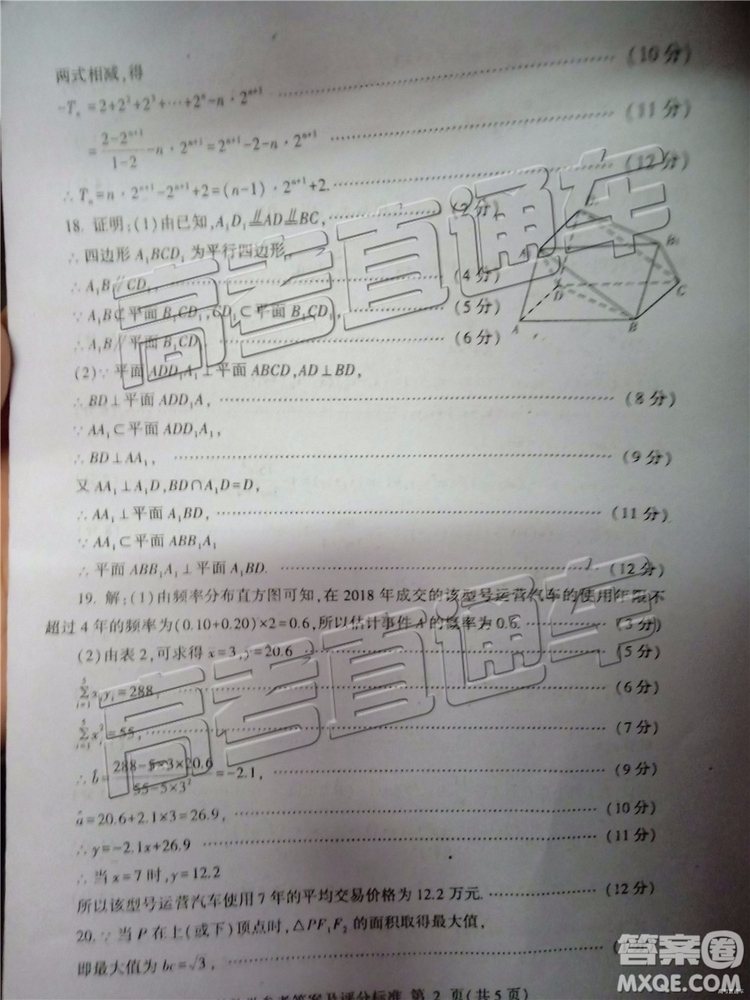 两式相减,得 ……(10分)
-Tₙ=2+2²+2³+…+2ⁿ-n·2ⁿ⁺¹ ……(11分)
=(2-2ⁿ⁺¹)/(1-2)-n·2ⁿ⁺¹=2ⁿ⁺¹-2-n·2ⁿ⁺¹
∴Tₙ=n·2ⁿ⁺¹-2ⁿ⁺¹+2=(n-1)·2ⁿ⁺¹+2. ……(12分)
18. 证明:(1)由已知,A₁D₁∥AD∥BC, ……(2分)
∴四边形A₁BCD₁为平行四边形,
∴A₁B∥CD₁, ……(4分)
∵A₁B⊄平面B₁CD₁,CD₁⊂平面B₁CD₁, ……(5分)
∴A₁B∥平面B₁CD₁. ……(6分)
A B C D
(2)∵平面ADD₁A₁⊥平面ABCD,AD⊥BD,
∴BD⊥平面ADD₁A₁, ……(8分)
∵AA₁⊂平面ADD₁A₁,
∴BD⊥AA₁, ……(9分)
又AA₁⊥A₁D,BD∩A₁D=D,
∴AA₁⊥平面A₁BD, ……(11分)
∵AA₁⊂平面ABB₁A₁
∴平面ABB₁A₁⊥平面A₁BD. ……(12分)
19. 解:(1)由频率分布直方图可知,在2018年成交的该型号运营汽车的使用年限不
超过4年的频率为(0.10+0.20)×2=0.6,所以估计事件A的概率为0.6. ……(3分)
(2)由表2,可求得x=3,y=20.6 ……(5分)
∑xᵢyᵢ=288, ……(6分)
∑xᵢ²=55, ……(7分)
∴b̂=(288-5×3×20.6)/(55-5×3²)=-2.1, ……(9分)
â=20.6+2.1×3=26.9, ……(10分)
∴y=-2.1x+26.9 ……(11分)
∴当x=7时,y=12.2
所以该型号运营汽车使用7年的平均交易价格为12.2万元. ……(12分)
20. ∵当P在上(或下)顶点时,△PF₁F₂的面积取得最大值,
即最大值为bc=√3,
参考答案及评分标准 第2页(共5页)
高考直通车
高考直通车
答案圈
MXQE.COM